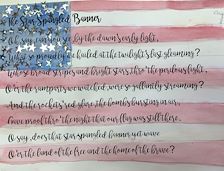 The Star Spangled Banner
O say can you see by the dawn's early light,
What so proudly we hailed at the twilight's last gleaming?
Whose broad stripes and bright stars thro' the perilous light,
O'er the ramparts we watched, were so gallantly streaming?
And the rockets' red glare, the bombs bursting in air,
Gave proof thro' the night that our flag was still there,
O say, does that star-spangled banner yet wave
O'er the land of the free and the home of the brave?